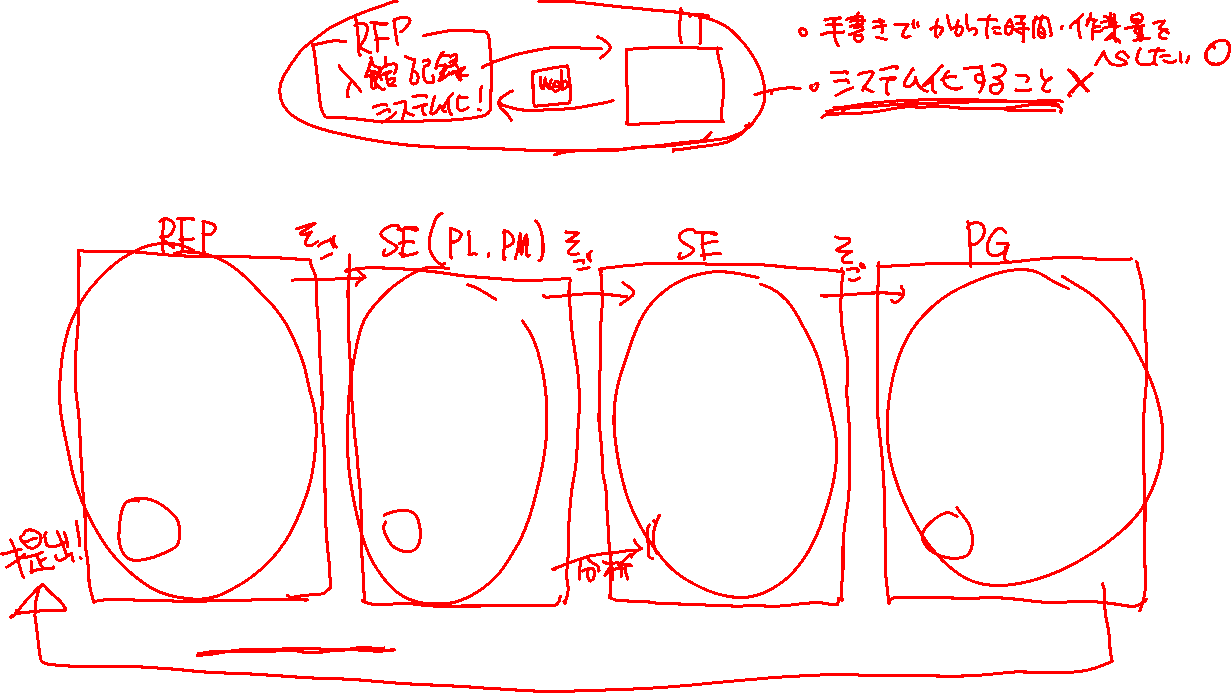 RFP
入館記録
システム化!
Web
・手書きでかかった時間・作業量を
へらしたい ○
・システム化すること ×
RFP
SE(PL、PM)
SE
PG
分析
提出!